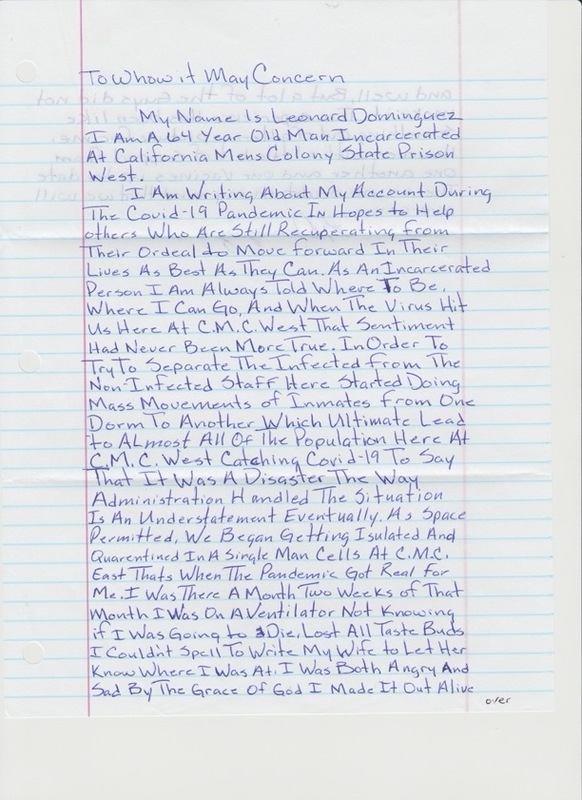 To Whow it May Concern
My Name Is Leonard Dominguez
I Am A 64 Year Old Man Incarcerated
At California Mens Colony State Prison
West.
I Am Writing About My Account During
The Covid-19 Pandemic In Hopes to Help
others Who Are Still Recuperating from
Their Ordeal to Move forward In Their
Lives As Best As They Can. As An Incarcerated
Person I Am Always Told Where To Be,
Where I Can Go, And When The Virus Hit
Us Here At C.M.C. West That Sentiment
Had Never Been More True. In Order To
Try To Separate The Infected from The
Non-Infected Staff Here Started Doing
Mass Movements of Inmates from One
Dorm To Another Which Ultimate Lead
to Almost All Of The Population Here At
C.M.C. West Catching Covid-19 To Say
That It Was A Disaster The Way
Administration Handled The Situation
Is An Understatement Eventually. As Space
Permitted, We Began Getting Isulated And
Quarentined In A Single Man Cells At C.M.C.
East Thats When The Pandemic Got Real for
Me. I Was There A Month Two Weeks of That
Month I Was On A Ventilator Not Knowing
if I Was Going to Die, Lost All Taste Buds
I Couldn't Spell To Write My Wife to Let Her
Know Where I Was At. I Was Both Angry And
Sad By The Grace Of God I Made It Out Alive
over